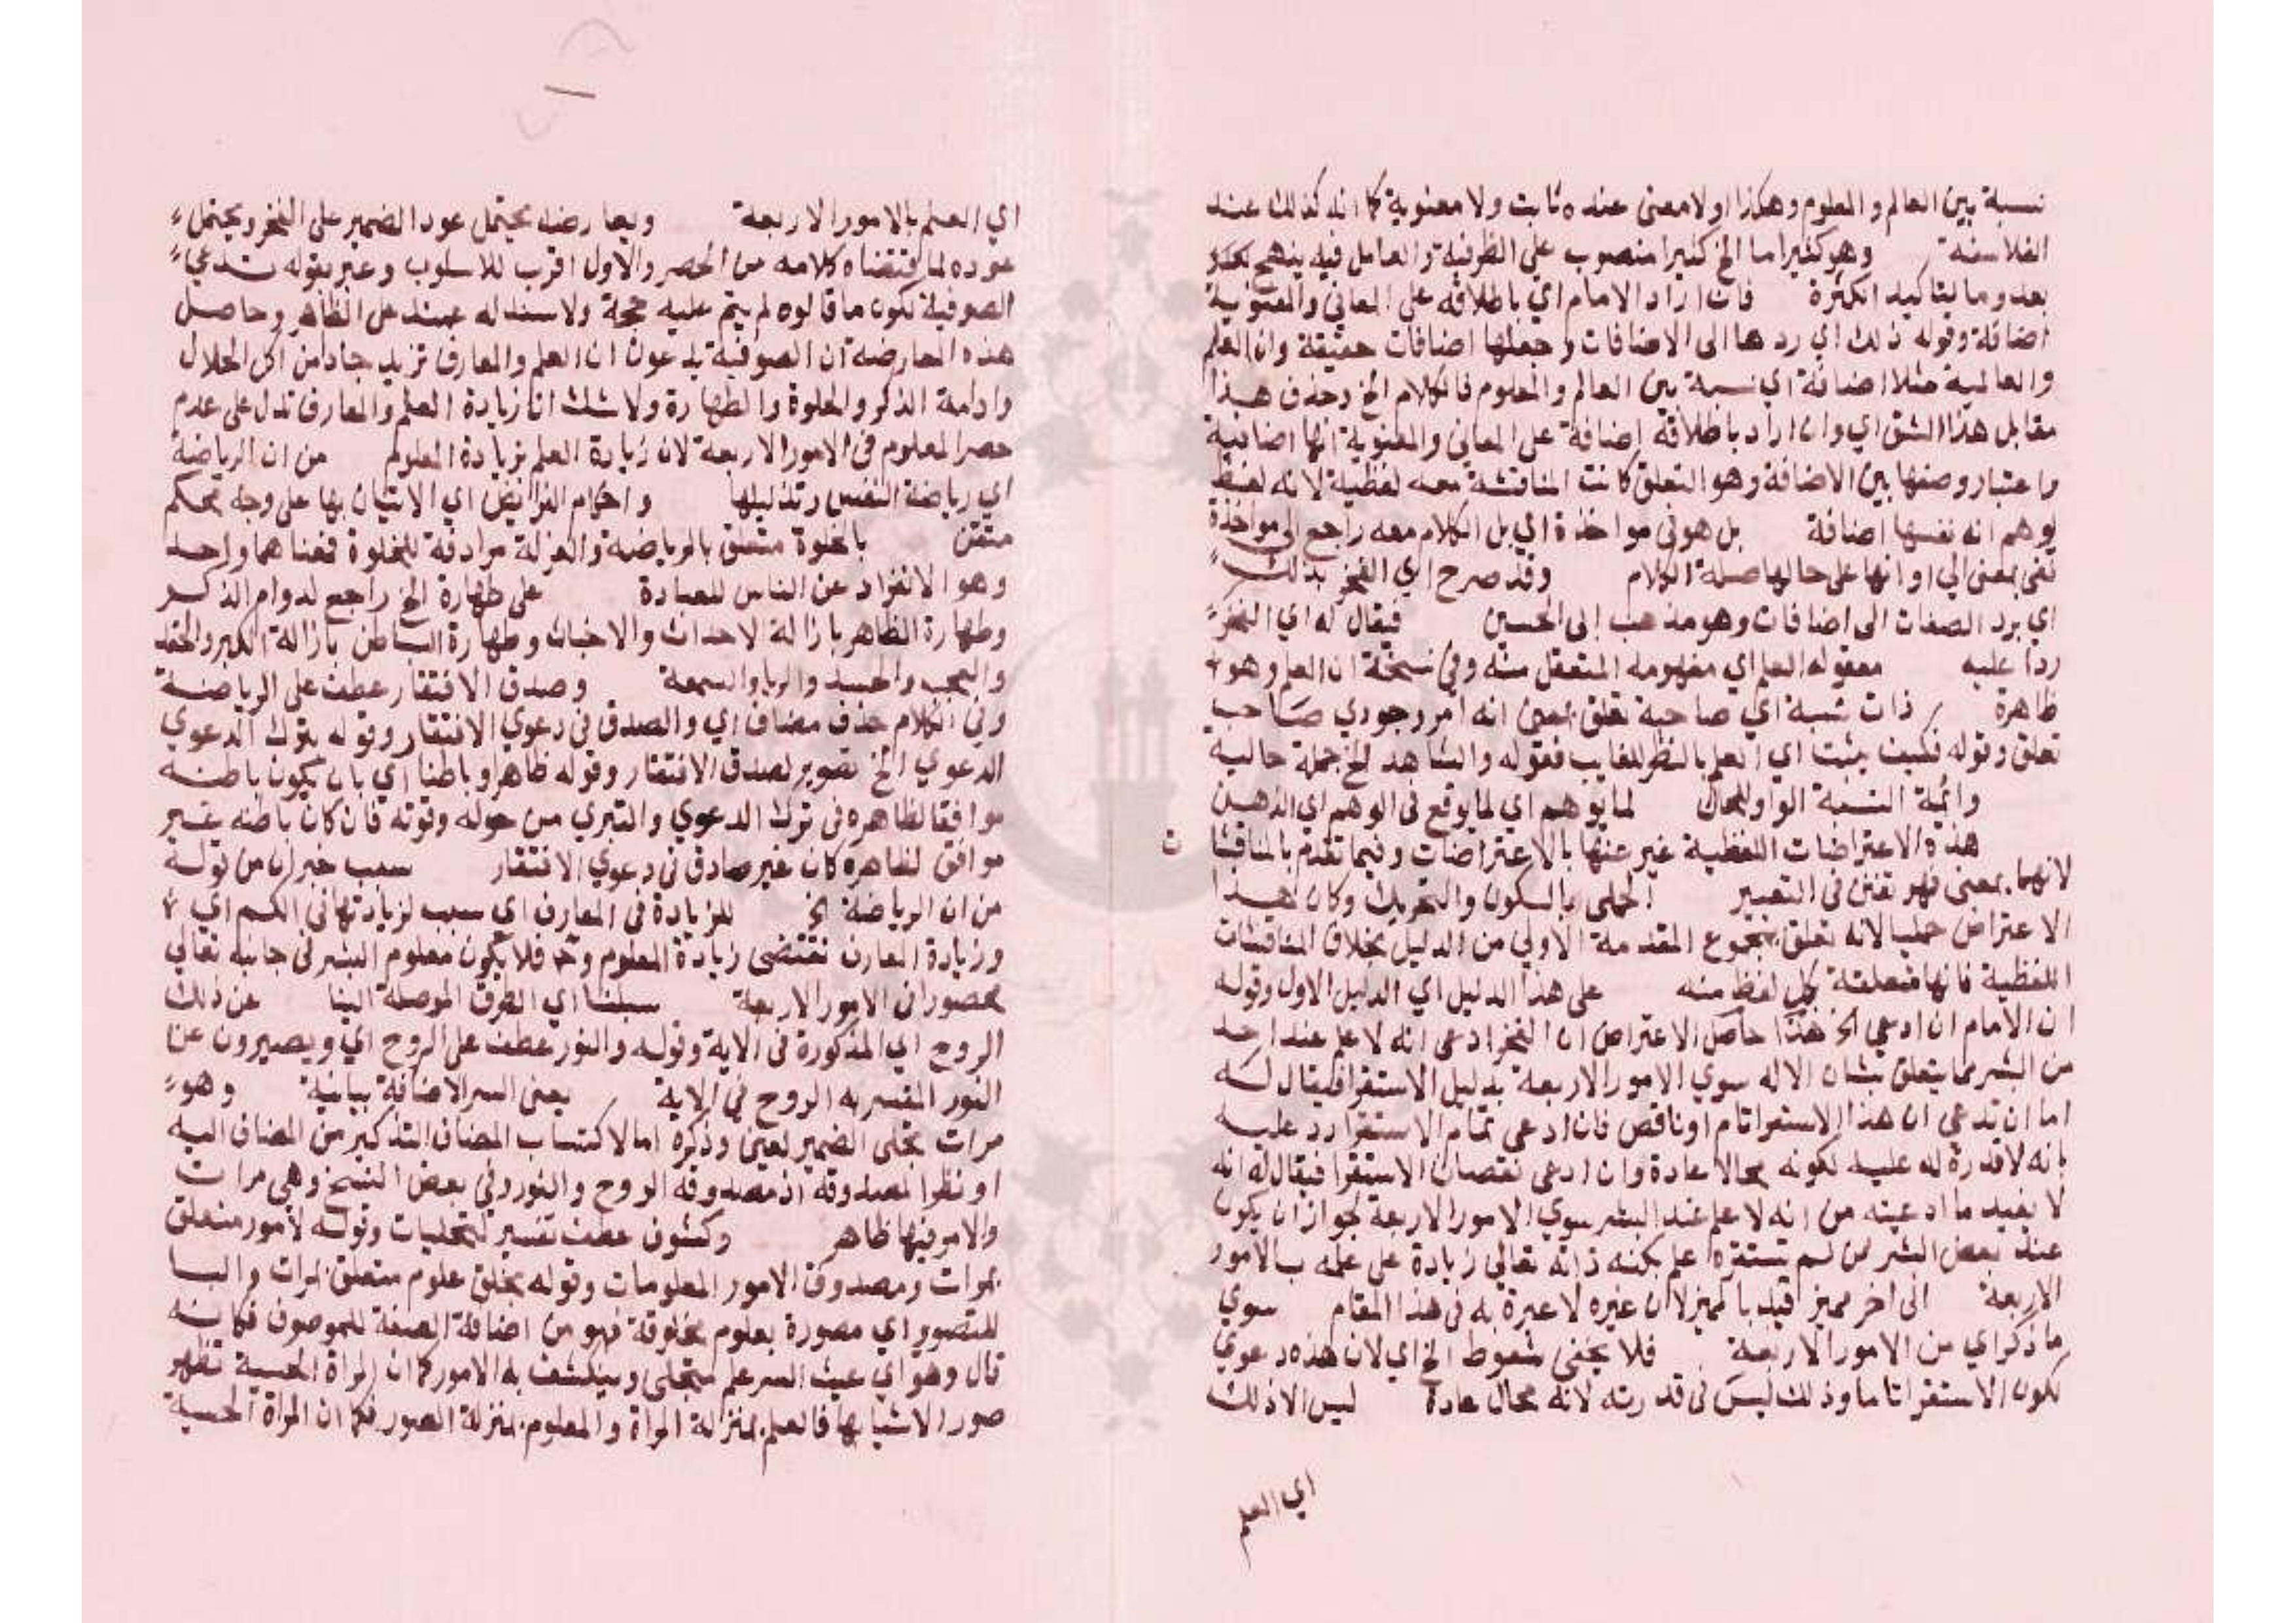 نسبة بين العالم والمعلوم وهكذا اولا معنى عنده ثابت ولا معنوية كما انه كذلك عند
الفلاسفة وهو كثيرا ما الخ كثيرا منصوب على الظرفية والعامل فيه ينهج
بعد وما لتاكيد الكثرة فان اراد الامام اي باطلاقه على المعاني والمعنوية
اضافة وقوله ذلك اي ردها الى الاضافات وجعلها اضافات حقيقة وان العلم
والعالمية مثلا اضافة اي نسبة بين العالم والمعلوم فالكلام الخ وحذف هذا
مقابل هذا الشق اي وان اراد باطلاقه اضافة على المعاني والمعنوية انها اضافية
واعتبار وصفها بين الاضافة وهو التعلق كانت المناقشة معه لفظية لانه لفظ
يوهم انه نفسها اضافة بل هو في مواخذة اي بل الكلام معه راجع الى مواخذة
ففي بمعنى الى او انها على حالها صلة الكلام وقد صرح اي الفخر بذلك
اي برد الصفات الى اضافات وهو مذهب ابى الحسين فيقال له اي الفخر
ردا عليه معقوله العلم اي مفهومه المتعقل منه وفي نسخة ان العلم وهو
ظاهرة ذات نسبة اي صاحبة تعلق بمعنى انه امر وجودي صاحب
تعلق وقوله فكيف يثبت اي العلم بالنظر للغايب فقوله والشاهد الخ جملة حالية
وائمة النسبة الواو للحال لما يوهم اي لما يوقع في الوهم اي الذهن
هذه الاعتراضات اللفظية عبر عنها بالاعتراضات وفيما تقدم بالمناقشات
لانهما بمعنى فهو تفنن في التعبير الجملى بالسكون والتحريك وكان هذا
الاعتراض جمليا لانه تعلق بمجموع المقدمة الاولى من الدليل بخلاف المناقشات
اللفظية فانها متعلقة بكل لفظ منه على هذا الدليل اي الدليل الاول وقوله
ان الامام ان ادعى الخ هذا حاصل الاعتراض ان الفخر ادعى انه لا علم عند احد
من البشر مما يتعلق بشان الاله سوي الامور الاربعة بدليل الاستقرا فيقال له
اما ان تدعى ان هذا الاستقرا تام او ناقص فان ادعى تمام الاستقرا رد عليه
بانه لا قدرة له عليه لكونه محالا عادة وان ادعى نقصان الاستقرا فيقال له انه
لا يفيد ما ادعيته من انه لا علم عند البشر سوي الامور الاربعة لجواز ان يكون
عند بعض البشر ممن لم تستقره علم بكنه ذاته تعالى زيادة على علمه بالامور
الاربعة الى اخر مميز قيد بالمميز لان غيره لا عبرة به في هذا المقام سوي
ما ذكر اي من الامور الاربعة فلا يخفى سقوط الخ اي لان هذه دعوي
لكون الاستقرا تاما وذلك ليس في قدرته لانه محال عادة ليس الا ذلك
اي العلم
اي العلم بالامور الاربعة ويعارضه يحتمل عود الضمير على الفخر ويحتمل
عوده لما اقتضاه كلامه من الحصر والاول اقرب للاسلوب وعبر بقوله تدعي
الصوفية لكون ما قالوه لم يتم عليه حجة ولا سند له عند على الظاهر وحاصل
هذه المعارضة ان الصوفية يدعون ان العلم والمعارف تزيد من اكل الحلال
وادامة الذكر والخلوة والطهارة ولا شك ان زيادة العلم والمعارف تدل على عدم
حصر المعلوم في الامور الاربعة لان زيادة العلم بزيادة المعلوم من ان الرياضة
اي رياضة النفس وتذليلها واحكام الفرايض اي الاتيان بها على وجه محكم
متقن بالخلوة متعلق بالرياضة والعزلة مرادفة للخلوة فمعناهما واحد
وهو الانفراد عن الناس للعبادة على طهارة الخ راجع لدوام الذكر
وطهارة الظاهر بازالة الاحداث والاخباث وطهارة الباطن بازالة الكبر والحقد
والعجب والحسد والريا والسمعة وصدق الافتقار عطف على الرياضة
وفي الكلام حذف مضاف اي والصدق في دعوي الافتقار وقوله بترك الدعوي
الدعوي الخ تصوير لصدق الافتقار وقوله ظاهرا وباطنا اي بان يكون باطنه
موافقا لظاهره في ترك الدعوي والتبري من حوله وقوته فان كان باطنه غير
موافق لظاهره كان غير صادق في دعوي الافتقار سبب خبر ان من قوله
من ان الرياضة الخ للزيادة في المعارف اي سبب لزيادتها في الكم اي
وزيادة المعارف تقتضى زيادة المعلوم وح فلا يكون معلوم البشر في جانبه تعالى
محصورا في الامور الاربعة سبلنا اي الطرق الموصلة الينا عن ذلك
الروح اي المذكورة في الاية وقوله والنور عطف على الروح اي ويصيرون عن
النور المفسر به الروح في الاية يعنى السر الاضافة بيانية وهو
مرات تجلى الضمير لعين وذكره اما لاكتساب المضاف التذكير من المضاف اليه
او نظرا لمصدوقه اذ مصدوقه الروح والنور وفي بعض النسخ وهي مرات
والامر فيها ظاهر وكشوف عطف تفسير لتجليات وقوله لامور متعلق
بمرات ومصدوق الامور المعلومات وقوله بخلق علوم متعلق بمرات والبا
للتصوير اي مصورة بعلوم مخلوقة فهو من اضافة الصفة للموصوف فكانه
قال وهو اي عين السر علم يتجلى وينكشف به الامور كما ان المراة الحسية تظهر
صور الاشيا بها فالعلم بمنزلة المراة والمعلوم بمنزلة الصور فكما ان المراة الحسية